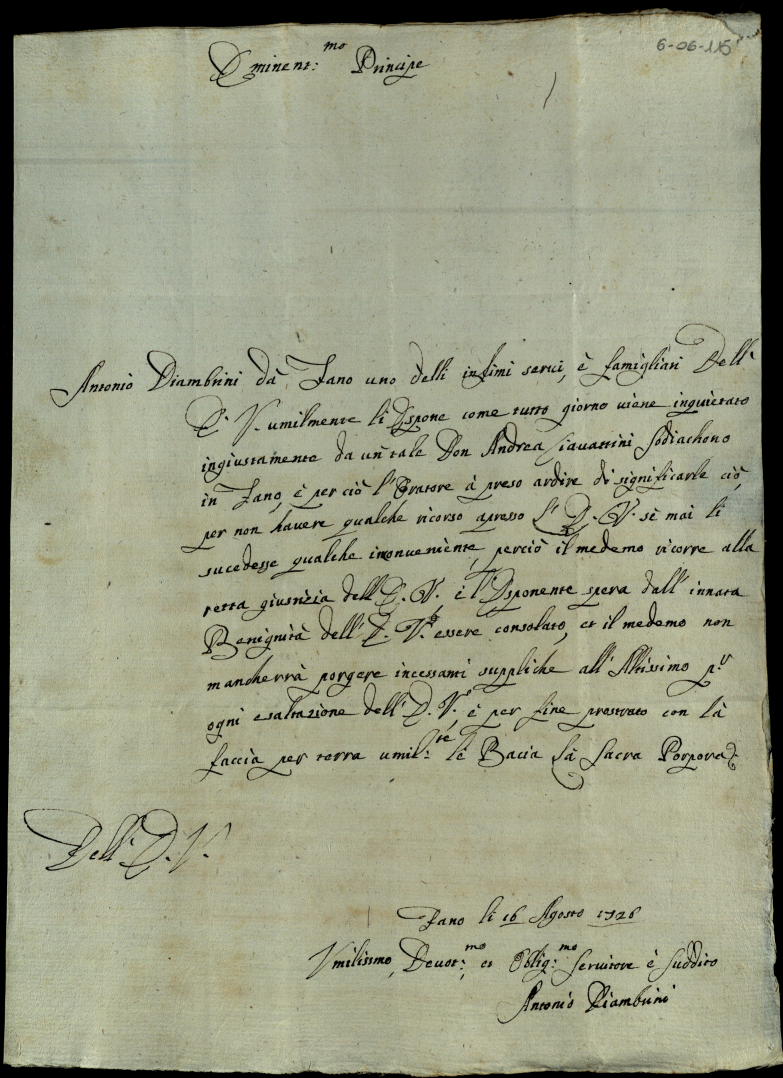 6-06-115
Eminent:mo Principe
Antonio Diambrini dà Fano uno delli infimi servi, è famigliari Dell'
E. V. umilmente li Espone come tutto giorno viene inquietato
ingiustamente da un tale Don Andrea Ciavattini Sodiachono
in Fano, è per ciò l'Oratore à preso ardire di significarle ciò,
per non havere qualche ricorso apresso l' E. V. sè mai li
sucedesse qualche inonveniente, perciò il medemo ricorre alla
retta giustizia dell' E. V. è l'Esponente spera dall' innata
Benignità dell' E. V. essere consolato, et il medemo non
mancherrà porgere incessanti suppliche all' Altissimo p.
ogni esaltazione dell' E. V., è per fine prostrato con là
faccia per terra umil:te lè Bacia là Sacra Porpora
Dell' E. V.
Fano li 16 Agosto 1726
Vmilissmo, Devot:mo, et Oblig:mo Servitore è Suddito
Antonio Diambrini